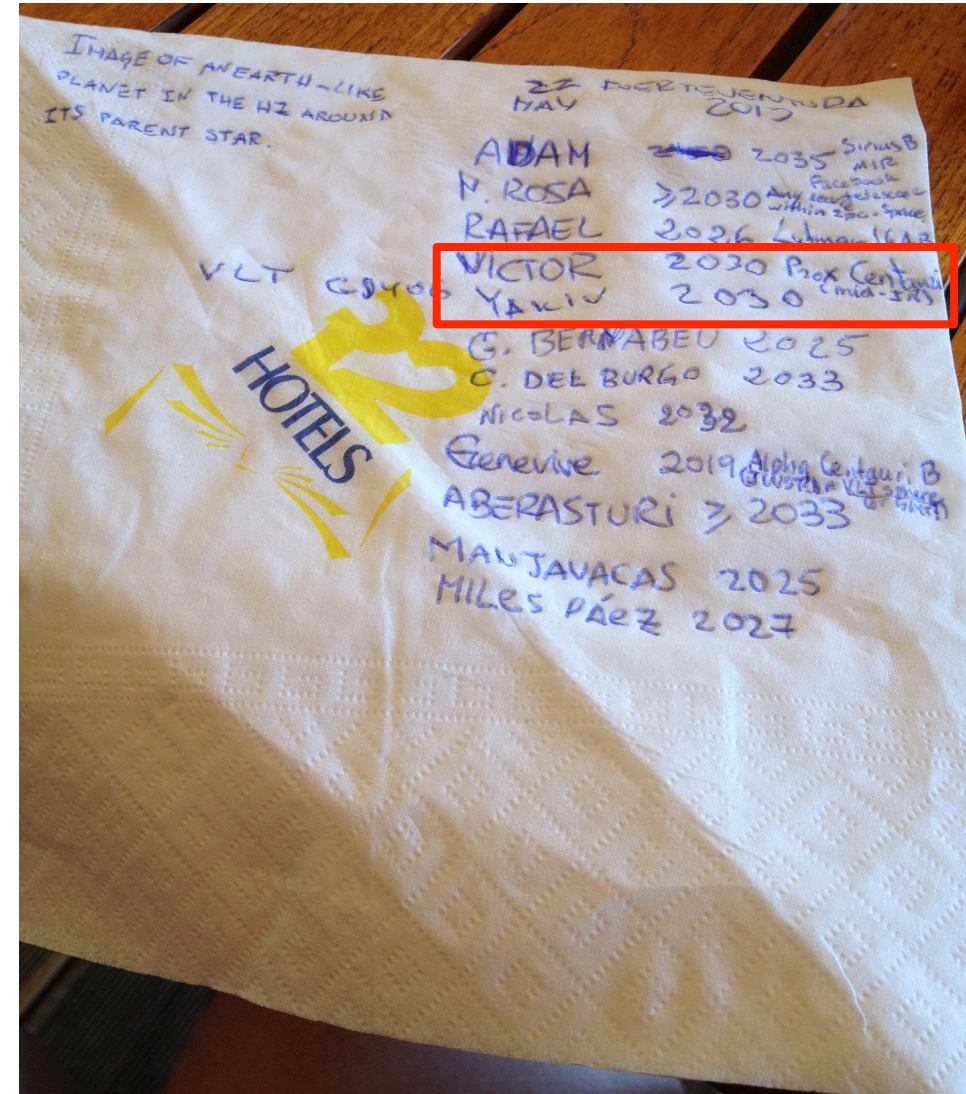 IMAGE OF AN EARTH-LIKE
PLANET IN THE HZ AROUND
ITS PARENT STAR.
22 FUERTEVENTURA
MAY 2013
ADAM 2035 Sirius B
MIR
Facebook
N. ROSA ≥2030 Any
within 2pc. Space
RAFAEL 2026 Luhman 16AB
VICTOR 2030 Prox Centauri
YAKIV 2030 (mid-IR)
VLT
G. BERNABEU 2025
C. DEL BURGO 2033
NICOLAS 2032
Genevive 2019 Alpha Centauri B
ABERASTURI ≥ 2033
MANJAVACAS 2025
MILES PÁEZ 2027
HOTELS